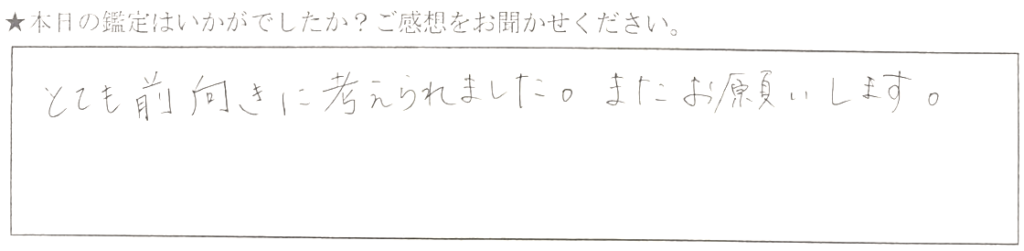 ★本日の鑑定はいかがでしたか?ご感想をお聞かせください。
とても前向きに考えられました。またお願いします。